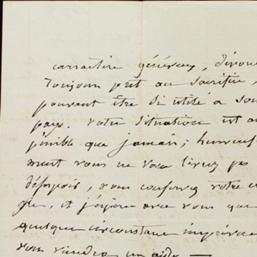 carractère généreux, dévoué
toujours prêt au sacrifice,
pouvant être di utilité a son
pays. Votre situation est
pénible que jamais; heureuse
ment vous ne vous livrez pas
désespoir, vous conservez votre
et j'espère avec vous que
quelque circonstance imprévue
vous viendra en aide —